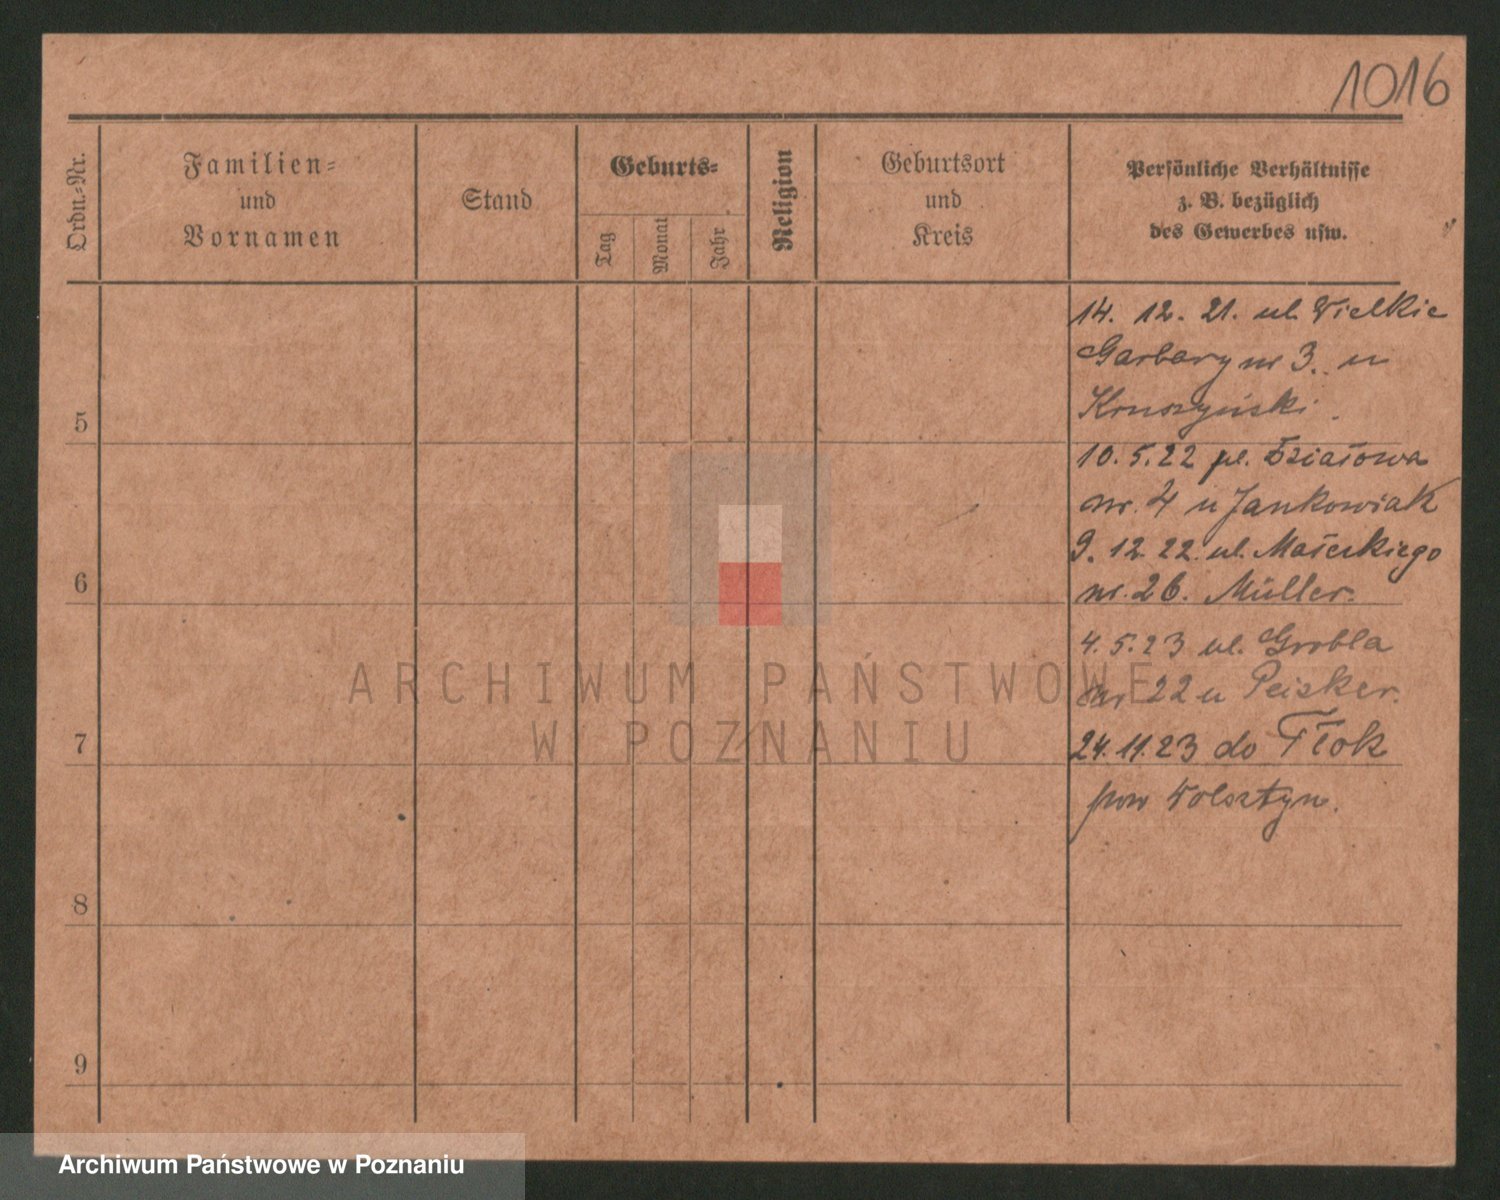 1016
Ordn.-Nr.
Familien-
und
Vornamen
Stand
Geburts-
Tag
Monat
Jahr
Religion
Geburtsort
und
Kreis
Persönliche Verhältnisse
z. B. bezüglich
des Gewerbes usw.
14. 12. 21. ul. Wielkie
Garbary nr 3. u
5
10.5.22 pl. Działowa
nr. 4 u Jankowiak
9. 12. 22. ul. Małeckiego
6
nr. 26. Müller.
4.5.23 ul. Grobla
nr 22 u Peisker.
7
24.11.23 do Tłok
pow Wolsztyn.
8
9
ARCHIWUM PAŃSTWOWE
W POZNANIU
Archiwum Państwowe w Poznaniu